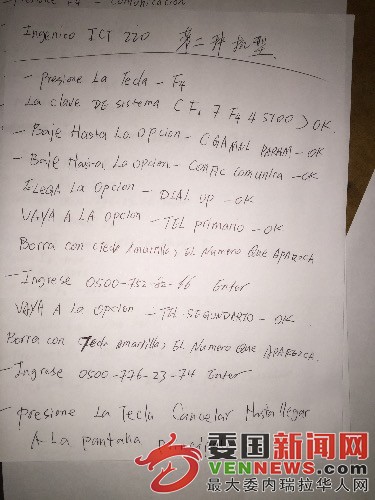 F4 - Comunicacion
Ingenico ICT 220 第二种机型
- Presione La Tecla - F4
La clave DE sistema CF, 7 F4 4 5100 > OK.
- Baje Hasta La opcion - PARAM - OK
- Baje Hasta La opcion - CONFIC COMUNICA - OK
ELEGA La Opcion - DIAL UP - OK
VAYA A LA opcion - TEL primario - OK
Borra con Amarillo; EL Numero Que
- Ingrese 0500-752-82-16 Enter
VAYA A La opcion - TEL SEGUNDARIO - OK
Borra con Tecla Amarillo; EL Numero Que
- Ingrase 0500-776-23-74 Enter
- Presione La Tecla Cancelar Hasta llegar
A La pantalla
委国新闻网
VENNEWS.COM
最大委内瑞拉华人网